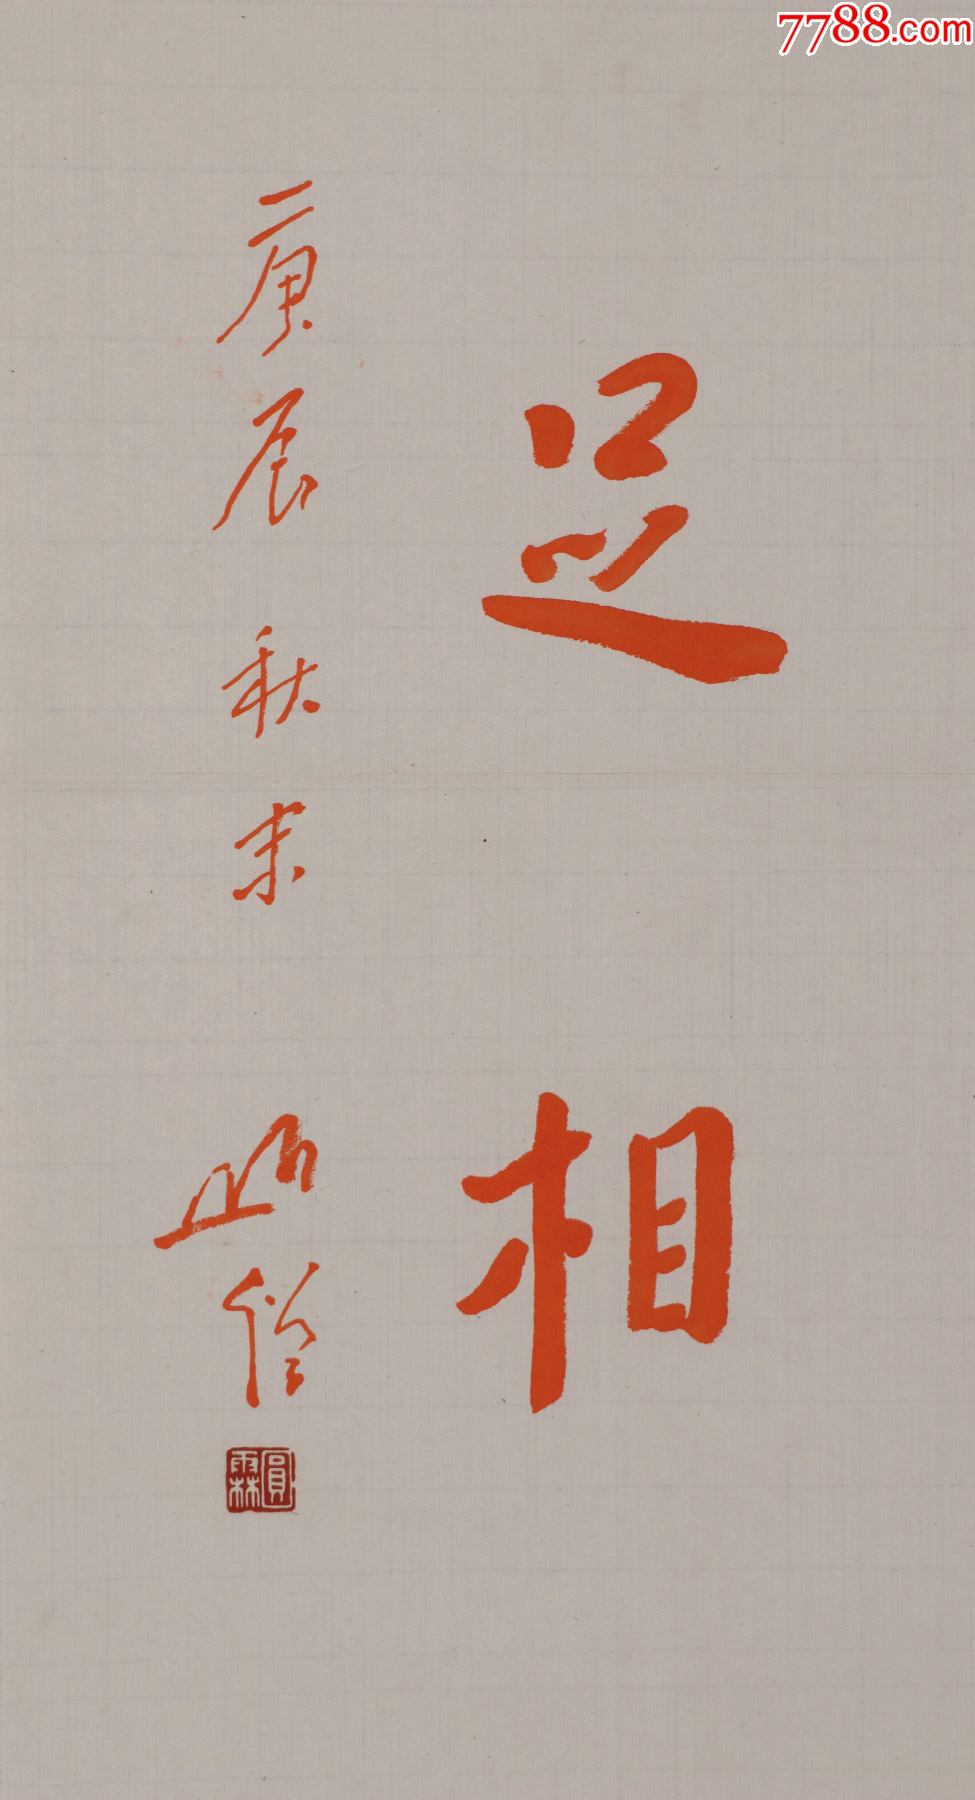 7788.com
足相
庚辰秋末 僧
圓霖